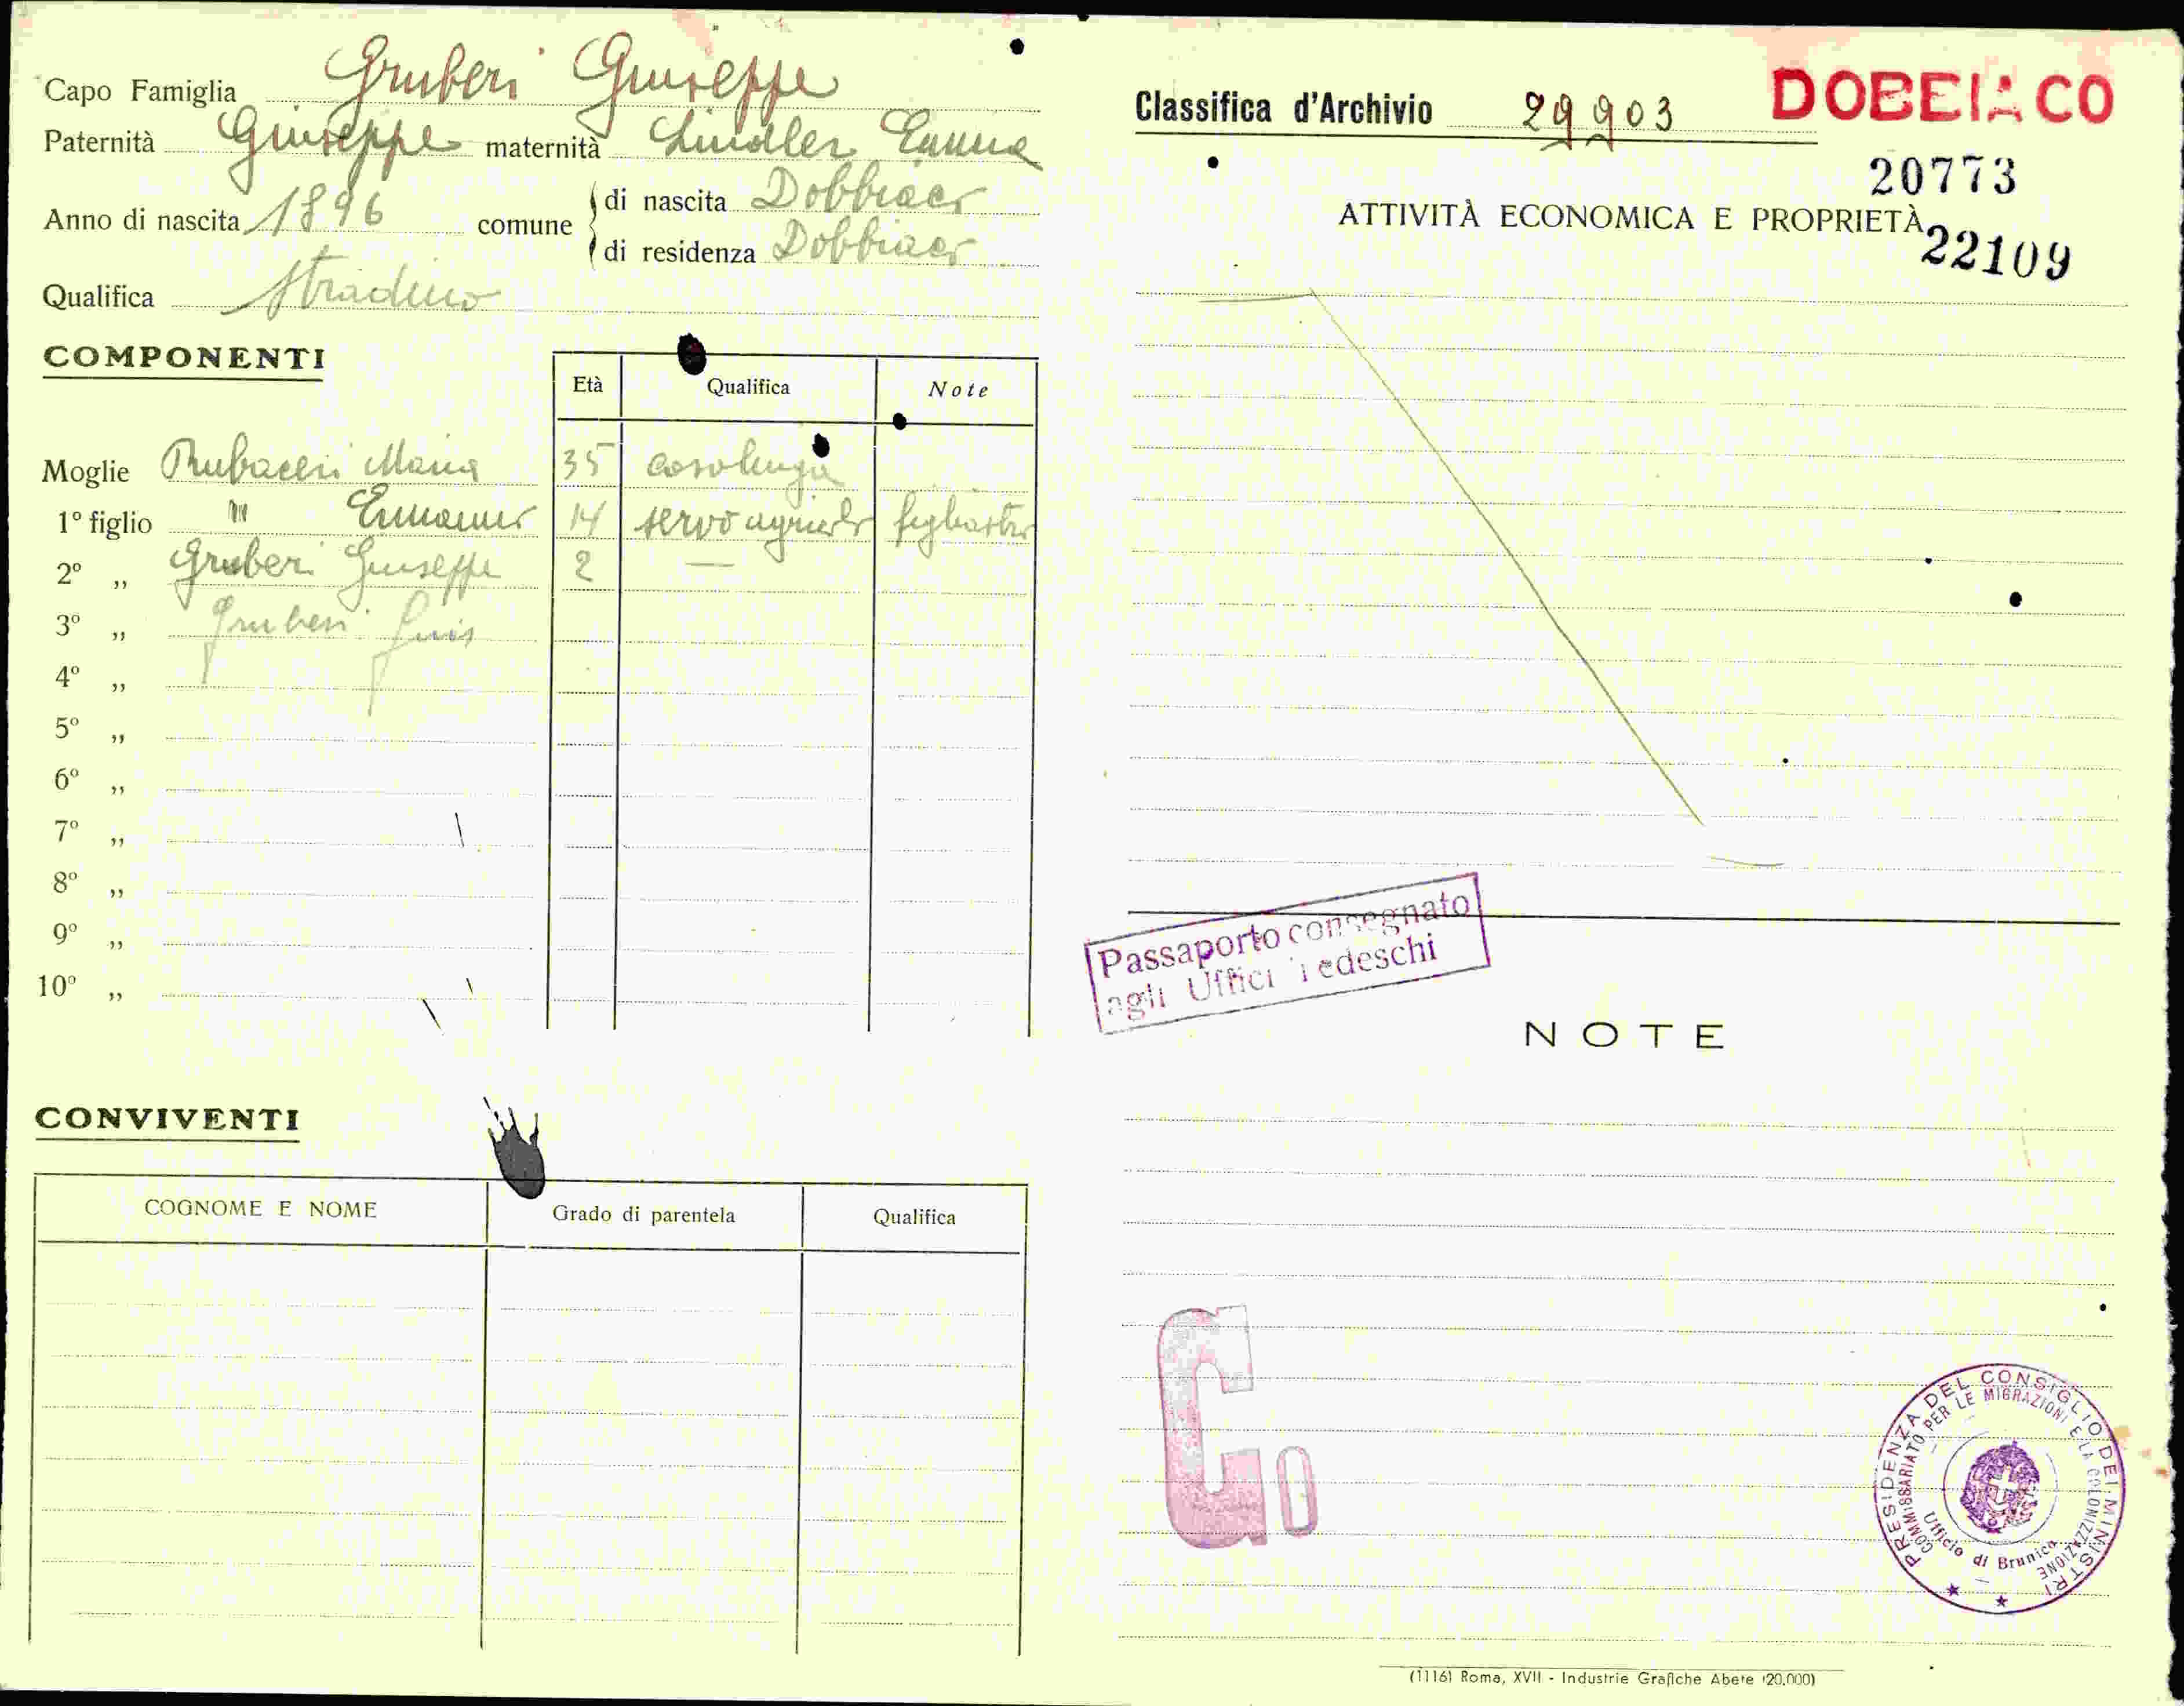 Capo Famiglia Gruberi Giuseppe
Paternità Giuseppe maternità Lindler Emma
Anno di nascita 1896 comune di nascita Dobbiaco
di residenza Dobbiaco
Qualifica stradino
COMPONENTI
Età Qualifica Note
Moglie Maria 35 casalinga
1º figlio " Ermanno 14 servo agricolo figliastro
2º „ Gruberi Giuseppe 2 —
3º „ Gruberi Luis
4º „
5º „
6º „
7º „
8º „
9º „
10º „
CONVIVENTI
COGNOME E NOME Grado di parentela Qualifica
Classifica d'Archivio 29903 DOBBIACO
20773
ATTIVITÀ ECONOMICA E PROPRIETÀ
22109
Passaporto consegnato
agli Uffici Tedeschi
NOTE
Go
PRESIDENZA DEL CONSIGLIO DEI MINISTRI
COMMISSARIATO PER LE MIGRAZIONI E LA COLONIZZAZIONE
Ufficio di Brunico
(1116) Roma, XVII - Industrie Grafiche Abete (20.000)